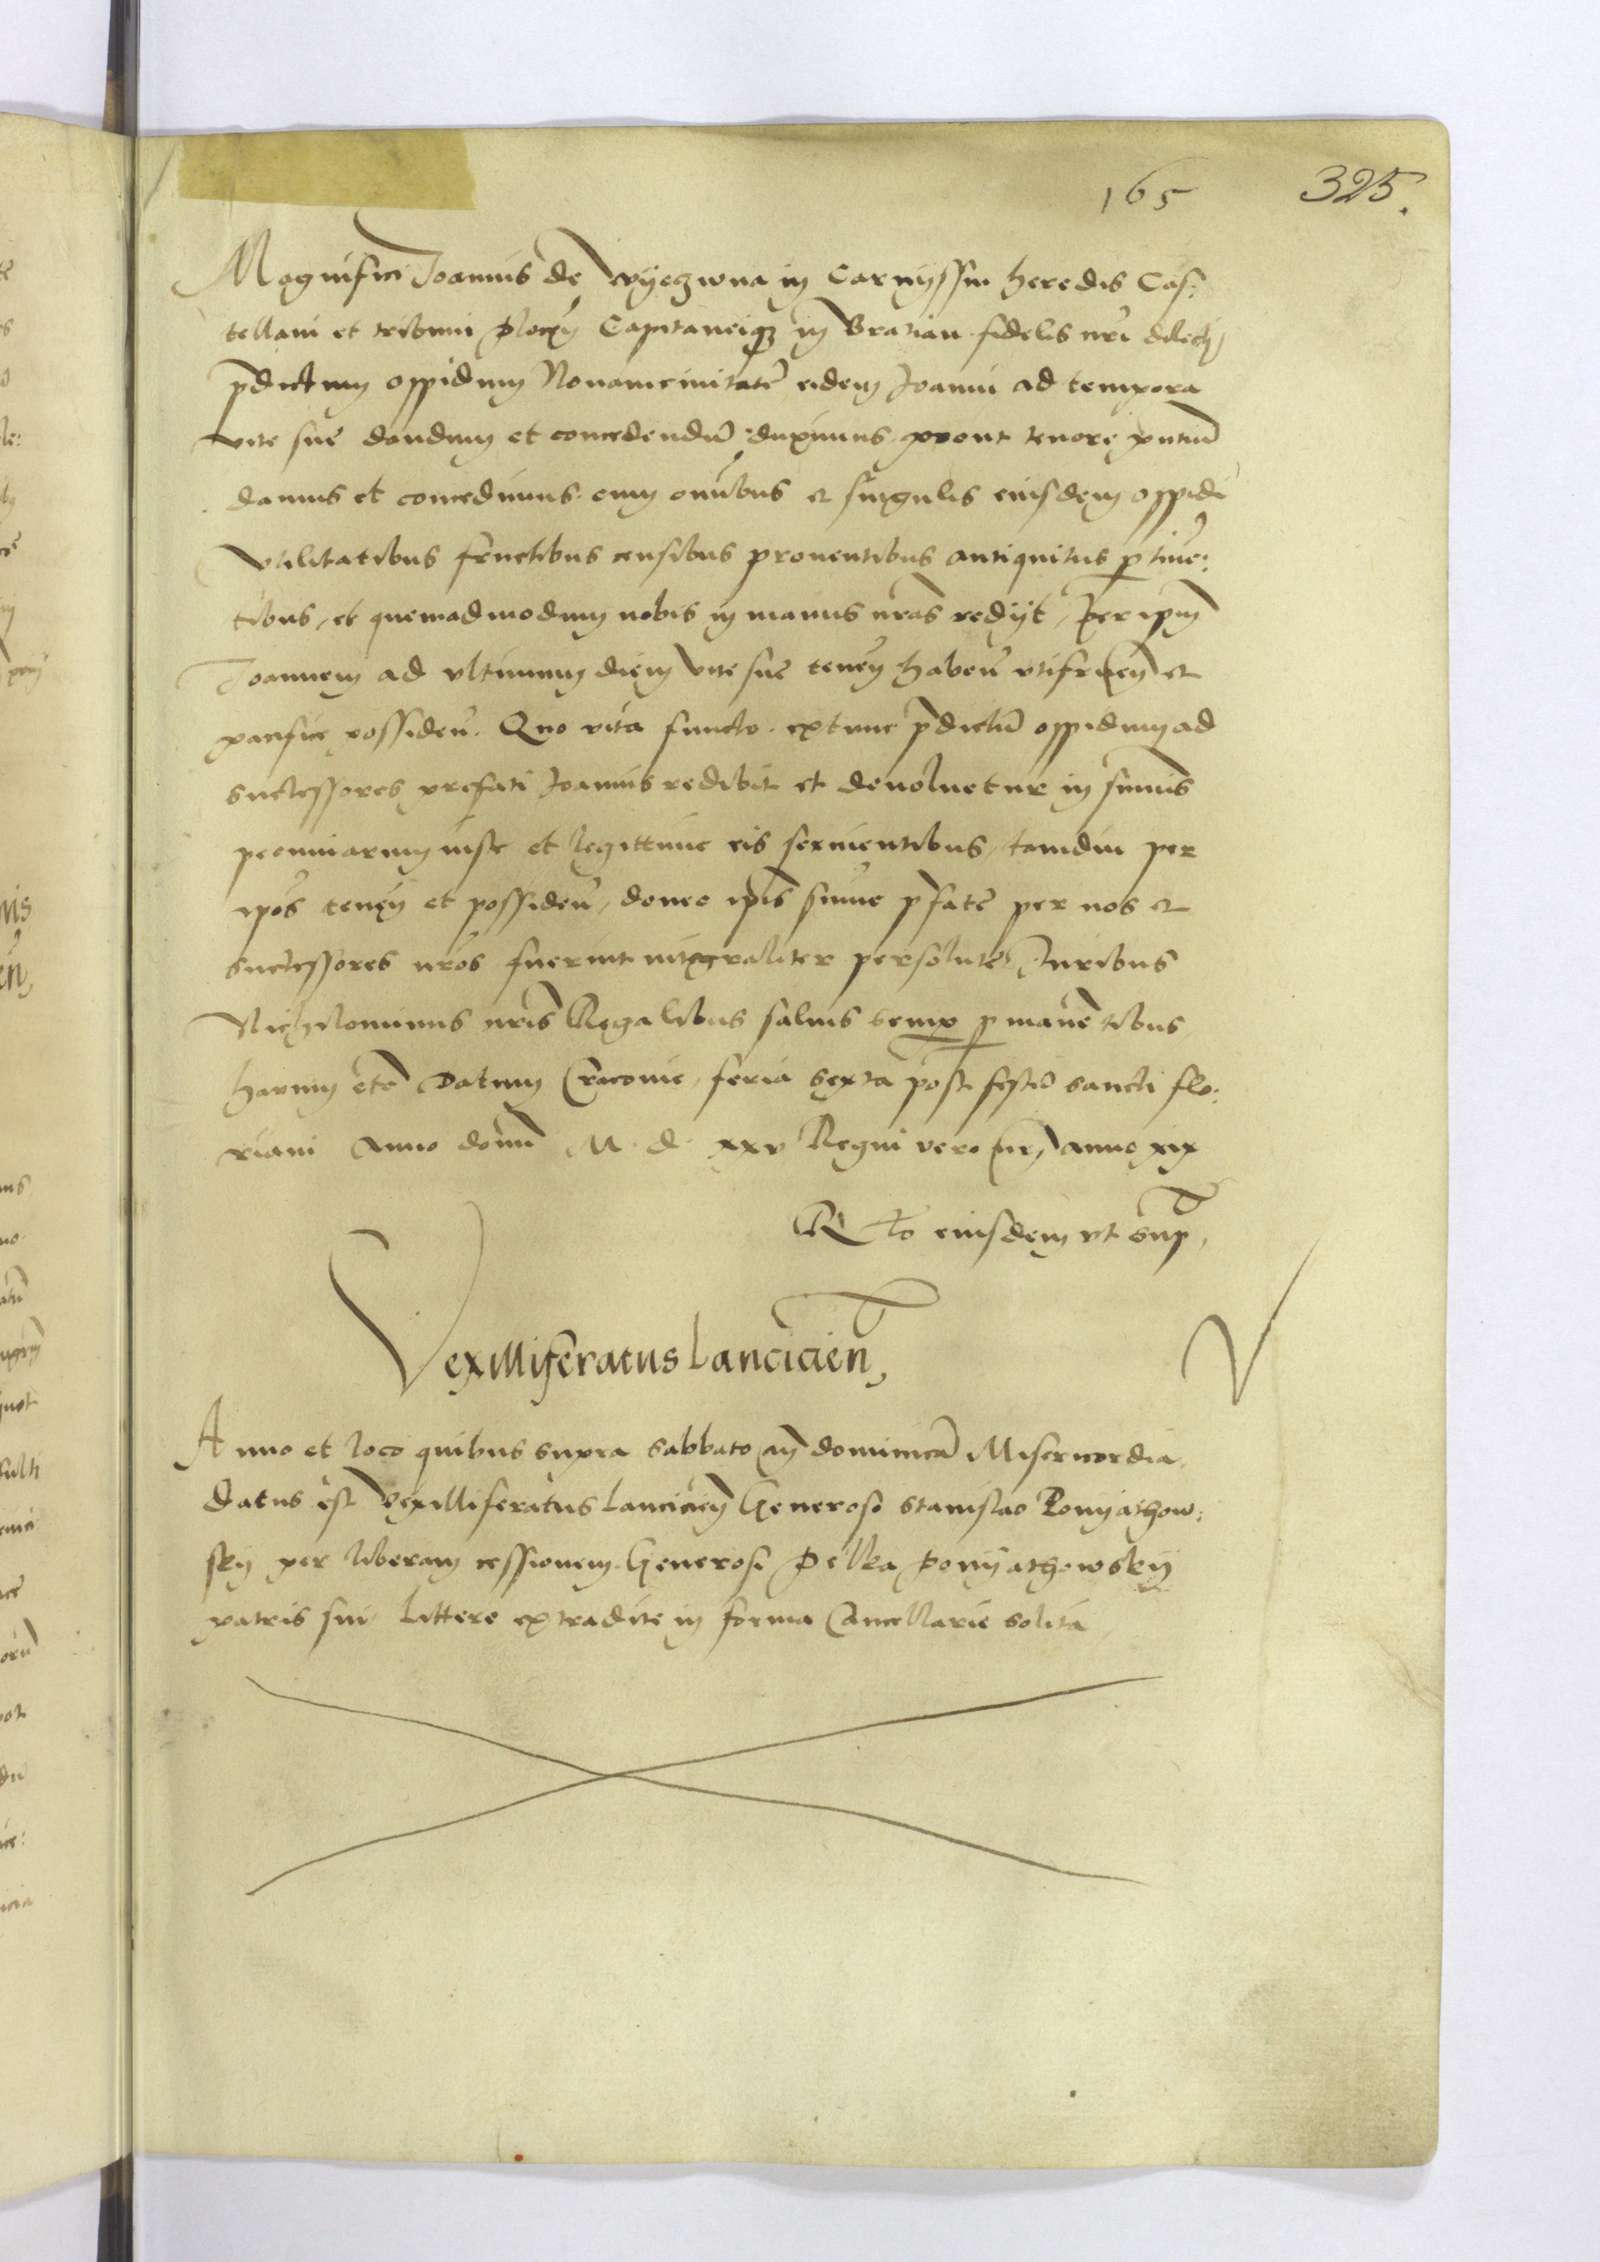 165 325.
Magnifici Joannis de Wyeczwna in Carnyssin heredis Cas:
tellani et tribuni plocen̄ Capitaneiqȝ in Bratian fidelis nr̄i dilecti,
p̄dictum oppidum Novamcivitatē eidem Joanni ad tempora
vite sue dandum et concedendū duximus prout tenore pn̄tiū
damus et concedimus. cum omībus et singulis eiusdem oppidi
vtilitatibus fructibus censibus proventibus antiquitus ꝑtinē:
tibus, et quemadmodum nobis in manus nr̄as redijt, Per ipm̄
Joannem ad vltimum diem vite sue teneñ habeñ vtifrueñ et
pacifice possideñ. Quo vita functo. extunc p̄dictū oppidum ad
successores prefati Joannis redibit et devoluetur in summis
pecuniarum iuste et legittime eis servientibus, tamdiu per
ipōs teneñ et possideñ, donec ip̄is sūme p̄fate per nos et
successores nr̄os fuerint integraliter persolute, Iuribus
Nichilominus nr̄is Regalibus salvis semꝑ ꝑmanētibus
harum etc̄ Datum Cracovie, feria sexta post festū sancti flo:
riani Anno domī M. d. xxv Regni vero nr̄i anno xix
R̄lo eiusdem vt sup̄,
Vexilliferatus Lancicien̄,
V
Anno et loco quibus supra sabbato añ dominicā Misericordia,
datus est Vexilliferatus Lancicien̄ Generoso Stanislao Ponyathow:
sky per liberam cessionem Generosi Pelka Ponyathowsky
patris sui Littere extradite in forma Cancellarie solita